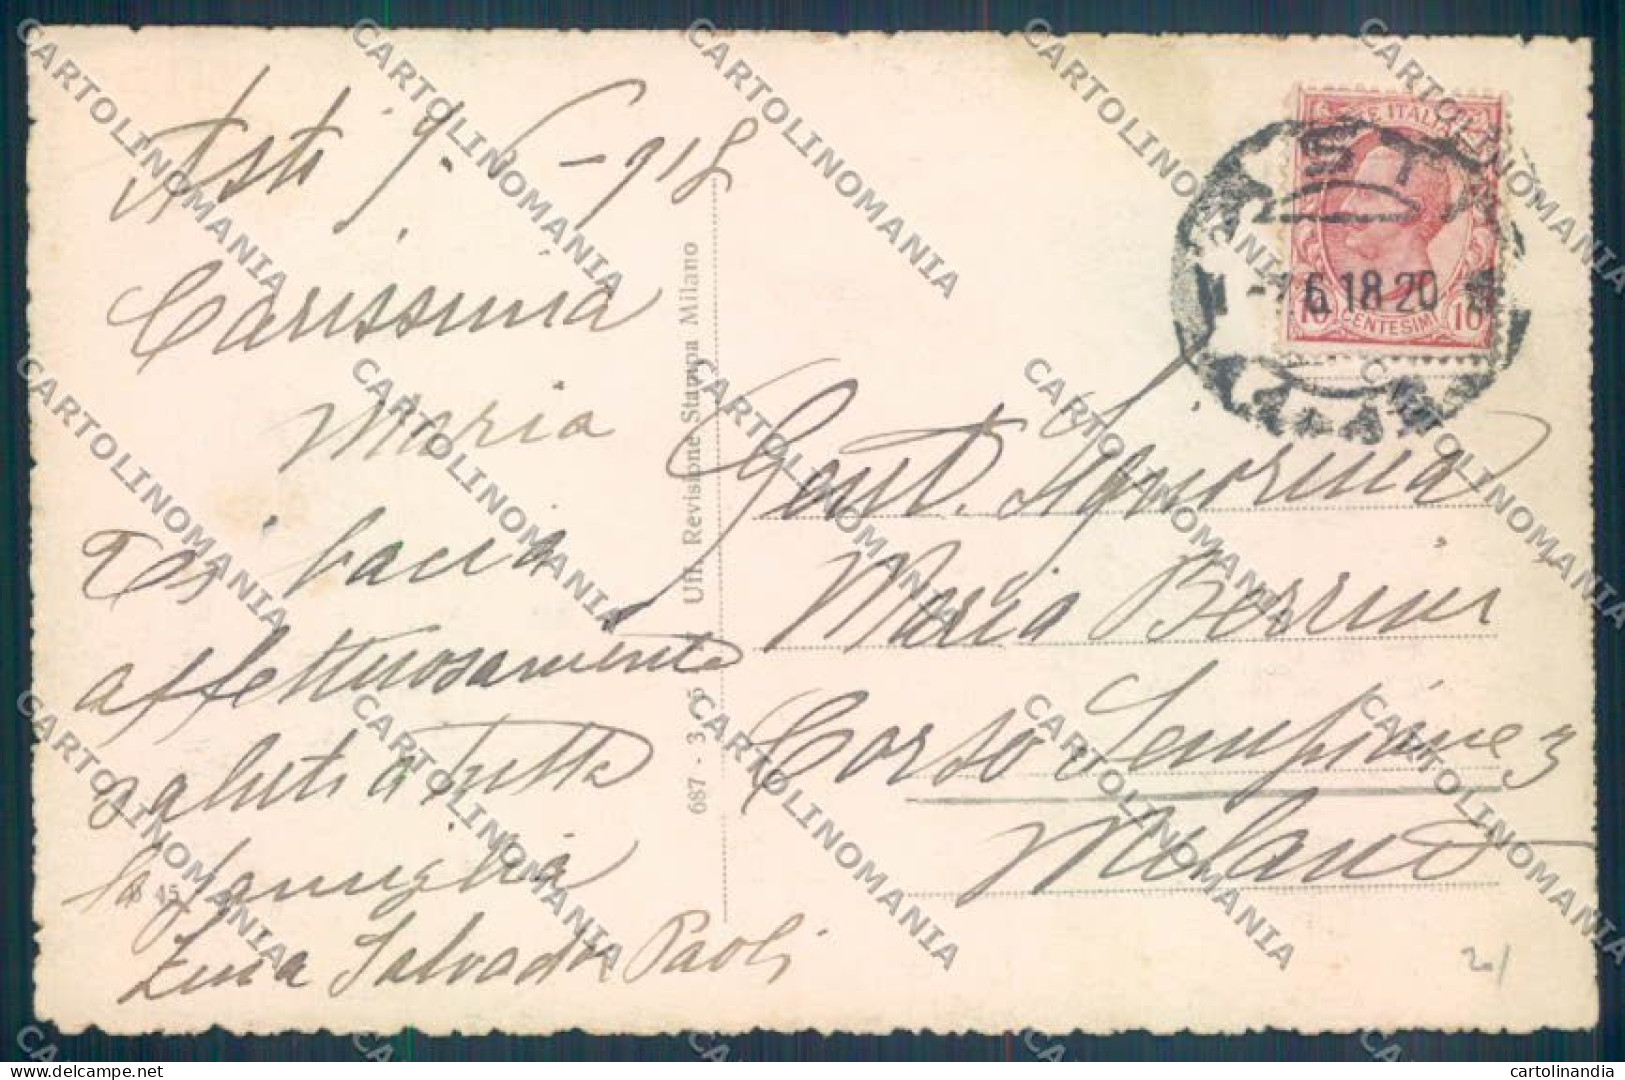 Asti 9-6-918
Carissima
Maria
Ti bacia
affettuosamente
saluti a tutta
la famiglia
Zina Salvador Paoli
B 45
687 - 3. 6 Uff. Revisione Stampa Milano
POSTE ITALIANE
CENTESIMI
10 10
ASTI
6.18 20
Gent. Signorina
Maria Berrini
Corso Sempione 3
Milano
201
CARTOLINOMANIA
cartolinandia